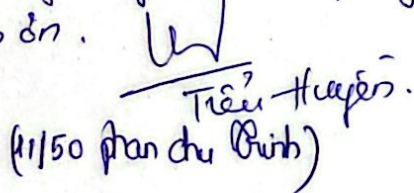 ơn.
Tiểu Huyền.
(41/50 phan chu Trinh)